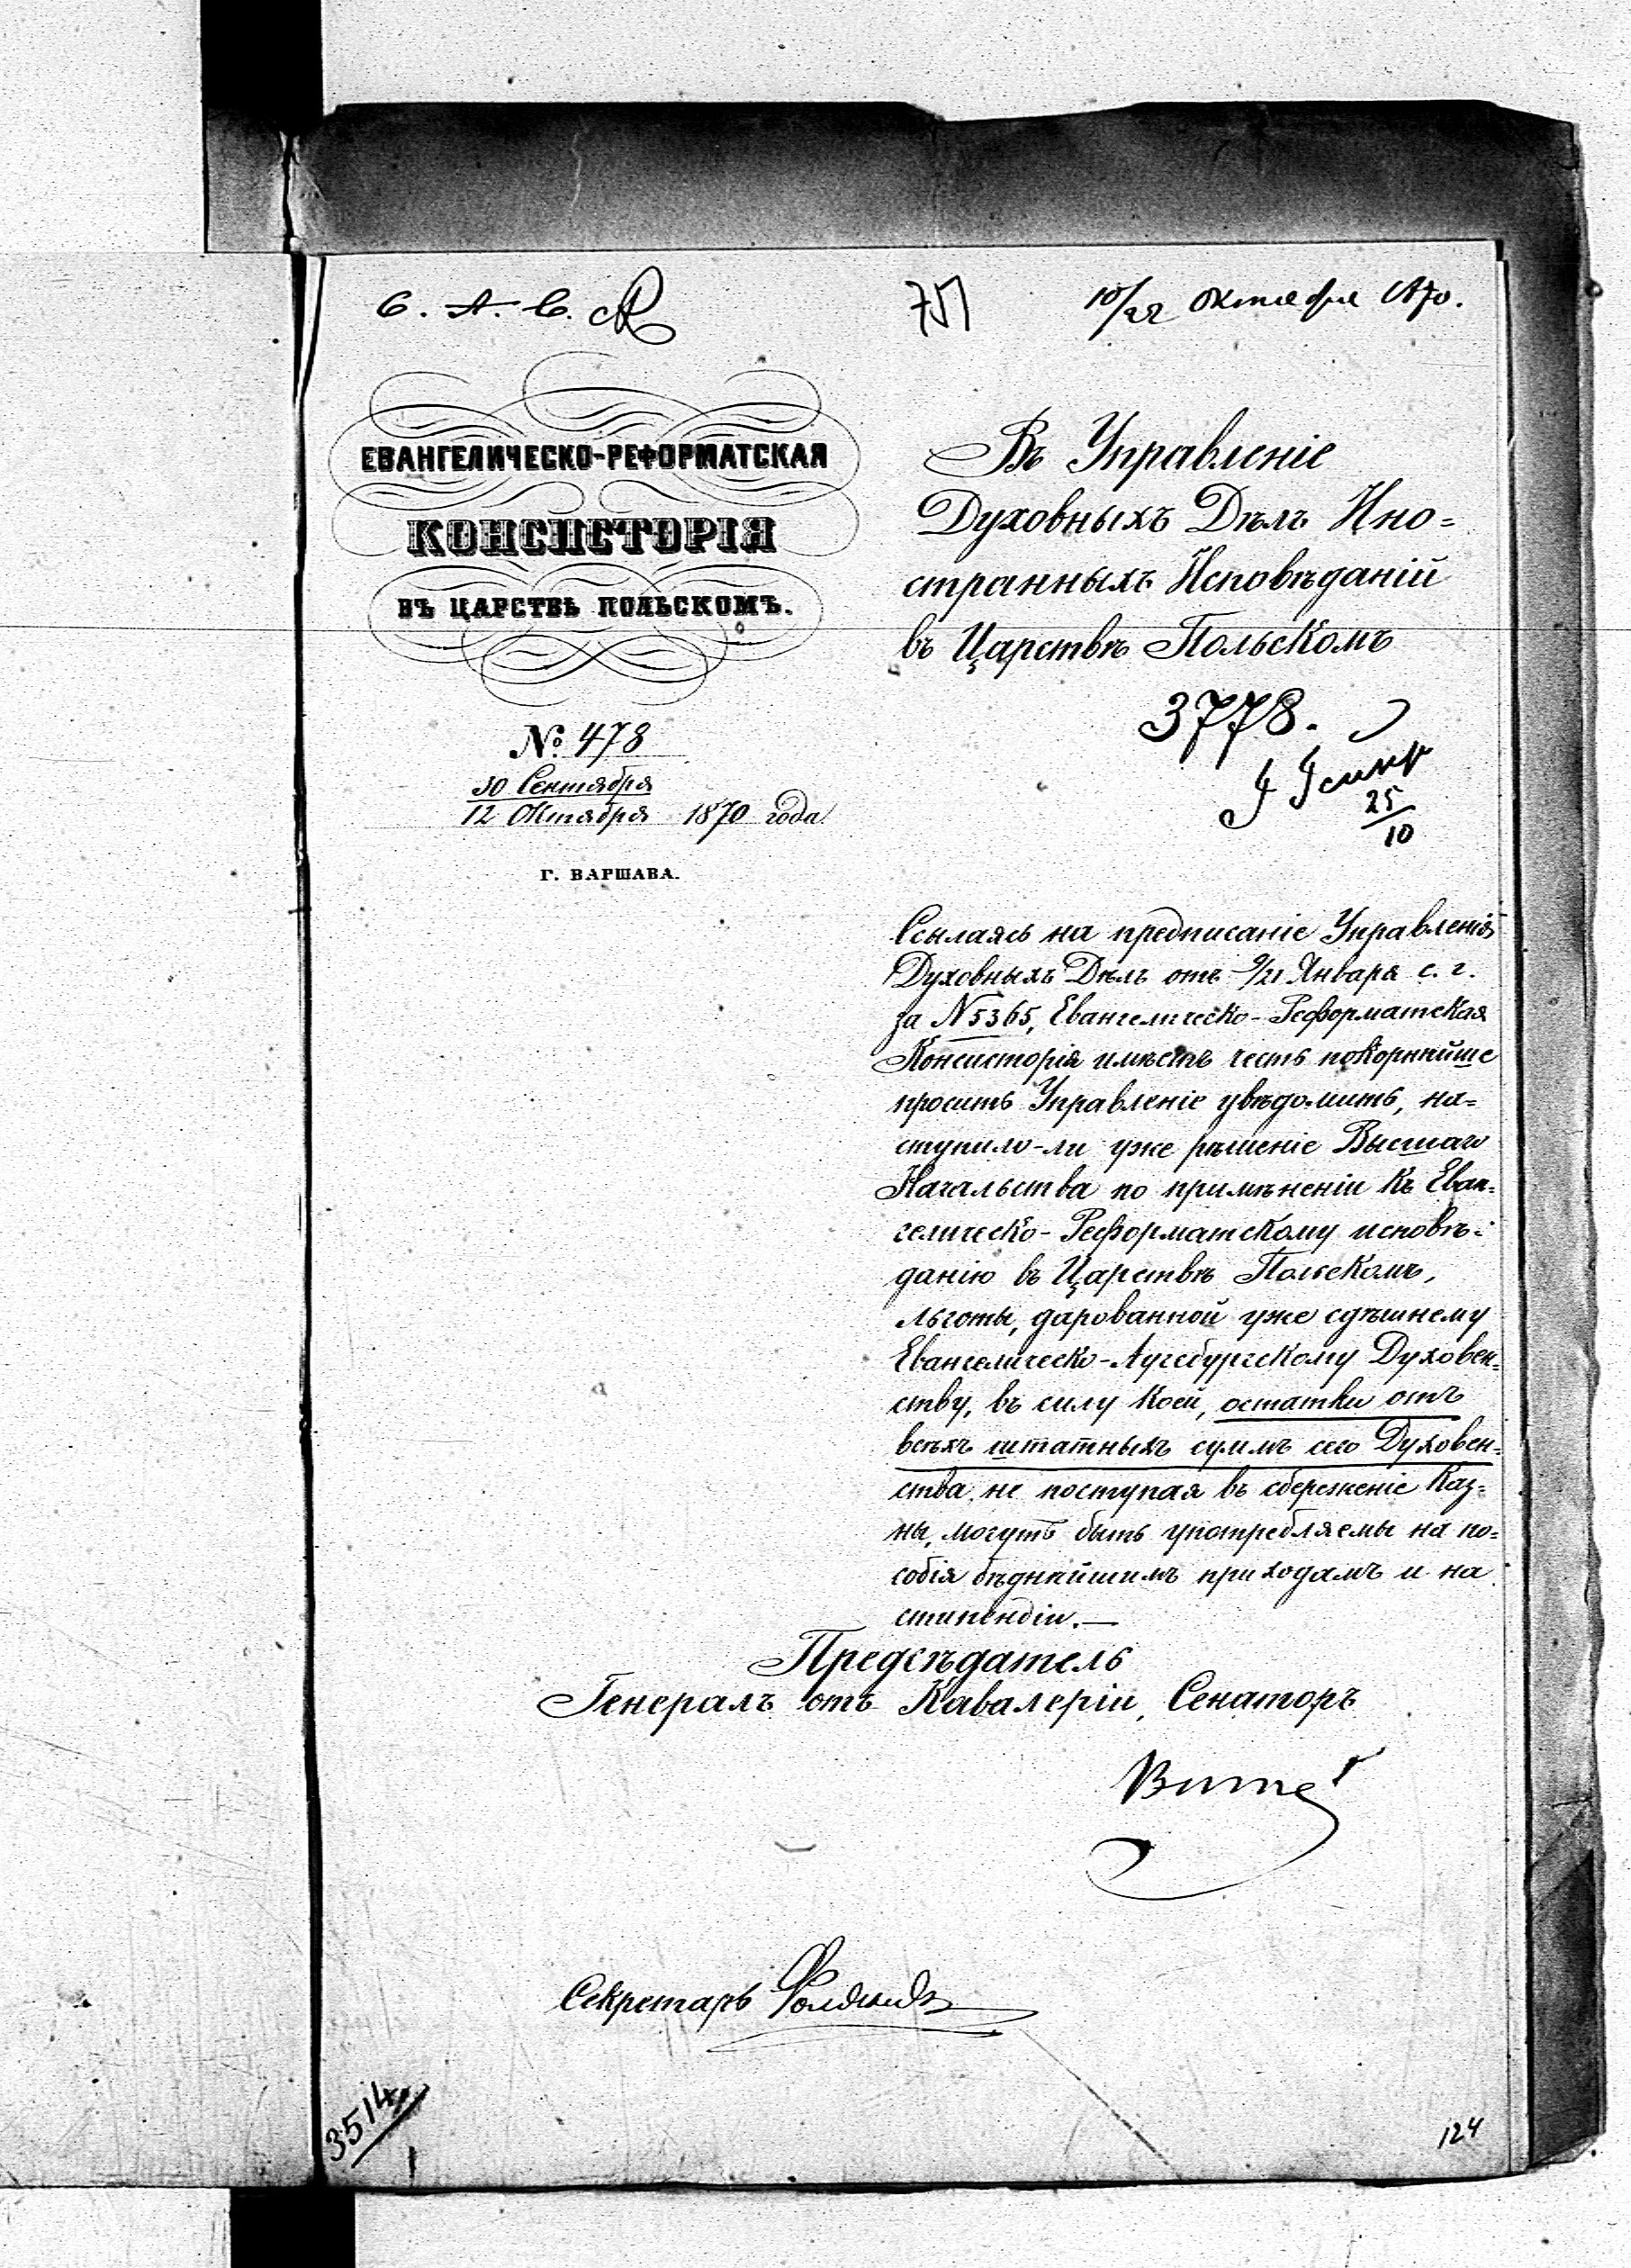 10/22 Октября 1870.
ЕВАНГЕЛИЧЕСКО-РЕФОРМАТСКАЯ
КОНСИСТОРІЯ
ВЪ ЦАРСТВѢ ПОЛЬСКОМЪ.
№ 478
30 Сентября
12 Октября 1870 года
Г. ВАРШАВА.
Въ Управленіе
Духовныхъ Дѣлъ Ино=
странныхъ Исповѣданій
въ Царствѣ Польскомъ
3778.
25
10
Ссылаясь на предписаніе Управленія
Духовныхъ Дѣлъ отъ 9/21 Января с. г.
за № 5365, Евангелическо-Реформатская
Консисторія имѣетъ честь покорнѣйше
просить Управленіе увѣдомить, на=
ступило-ли уже рѣшеніе Высшаго
Начальства по примѣненіи къ Еван=
гелическо-Реформатскому исповѣ=
данію въ Царствѣ Польскомъ,
льготы, дарованной уже сдѣшнему
Евангелическо-Аугсбургскому Духовен=
ству, въ силу коей, остатки отъ
всѣхъ штатныхъ суммъ сего Духовен=
ства, не поступая въ сбереженіе Каз=
ны, могутъ быть употребляемы на по=
собія бѣднѣйшимъ приходамъ и на
стипендіи.—
Предсѣдатель
Генералъ отъ Кавалеріи, Сенаторъ
Витте
Секретарь
3514
124